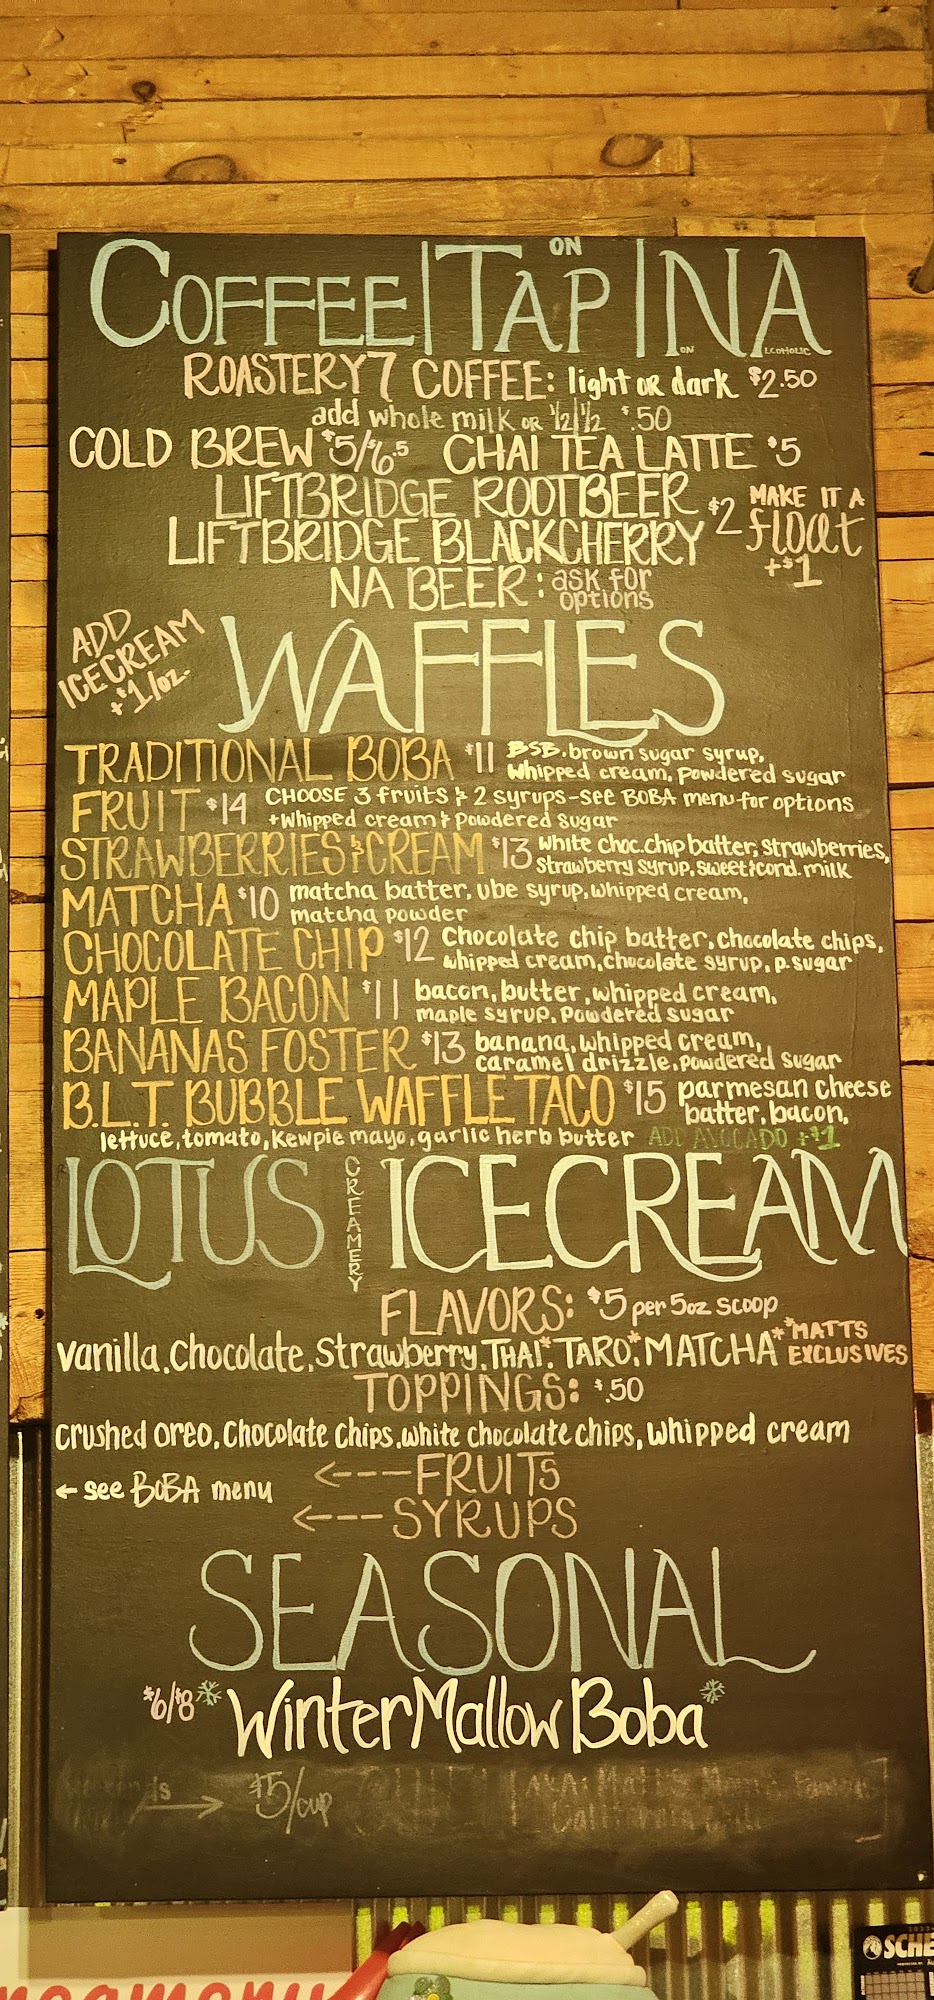 COFFEE | TAP ON | NA
ON LCOHOLIC
ROASTERY 7 COFFEE: light OR dark $2.50
add whole milk OR 1/2|1/2 $.50
COLD BREW $5/$6.5 CHAI TEA LATTE $5
LIFTBRIDGE ROOTBEER
LIFTBRIDGE BLACKCHERRY $2 MAKE IT A float +$1
NA BEER: ask for options
ADD ICECREAM +$1/oz.
WAFFLES
TRADITIONAL BOBA $11 BSB, brown sugar syrup,
whipped cream, powdered sugar
FRUIT $14 CHOOSE 3 fruits & 2 syrups-see BOBA menu for options
+whipped cream & powdered sugar
STRAWBERRIES & CREAM $13 white choc.chip batter, strawberries,
strawberry syrup, sweet & cond. milk
MATCHA $10 matcha batter, ube syrup, whipped cream,
matcha powder
CHOCOLATE CHIP $12 chocolate chip batter, chocolate chips,
whipped cream, chocolate syrup, p.sugar
MAPLE BACON $11 bacon, butter, whipped cream,
maple syrup, powdered sugar
BANANAS FOSTER $13 banana, whipped cream,
caramel drizzle, powdered sugar
B.L.T. BUBBLE WAFFLE TACO $15 parmesan cheese
batter, bacon,
lettuce, tomato, kewpie mayo, garlic herb butter ADD AVOCADO +$1
LOTUS CREAMERY ICECREAM
FLAVORS: $5 per 5oz scoop
vanilla, chocolate, strawberry, THAI*, TARO*, MATCHA* *MATTS EXCLUSIVES
TOPPINGS: $.50
crushed oreo, chocolate chips, white chocolate chips, whipped cream
← see BOBA menu <---FRUITS
<---SYRUPS
SEASONAL
$6/$8 Winter Mallow Boba
$5/cup
SCHE